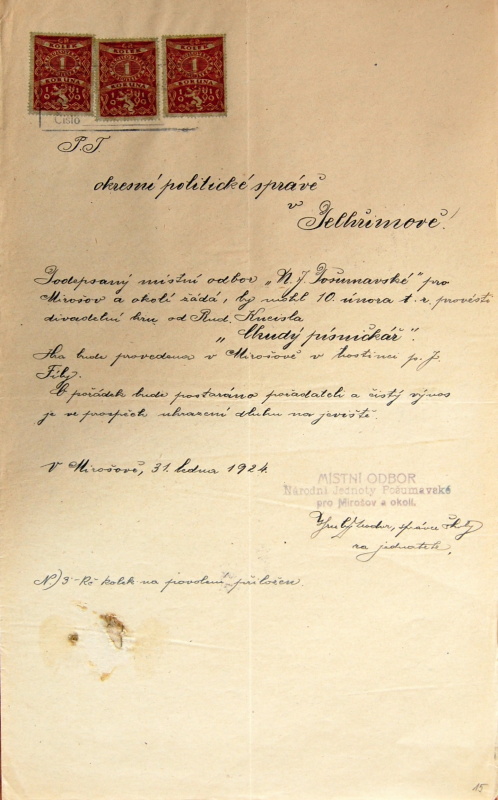 KOLEK KOLEK KOLEK
1 1 1
KORUNA KORUNA KORUNA
1919 1919 1919
Číslo
P. T.
okresní politické správě
v Pelhřimově!
Podepsaný místní odbor „N. J. Pošumavské" pro
Mirošov a okolí žádá, by mohl 10. února t. r. provésti
divadelní hru od Rud. Kneisla
„Chudý písničkář".
Hra bude provedena v Mirošově v hostinci p. J.
Fily.
O pořádek bude postaráno pořadateli a čistý výnos
je ve prospěch uhrazení dluhu na jeviště.
V Mirošově, 31. ledna 1924.
MÍSTNÍ ODBOR
Národní Jednoty Pošumavské
pro Mirošov a okolí.
správce školy
za jednatele.
N) 3 Kč kolek na povolení přiložen.
15